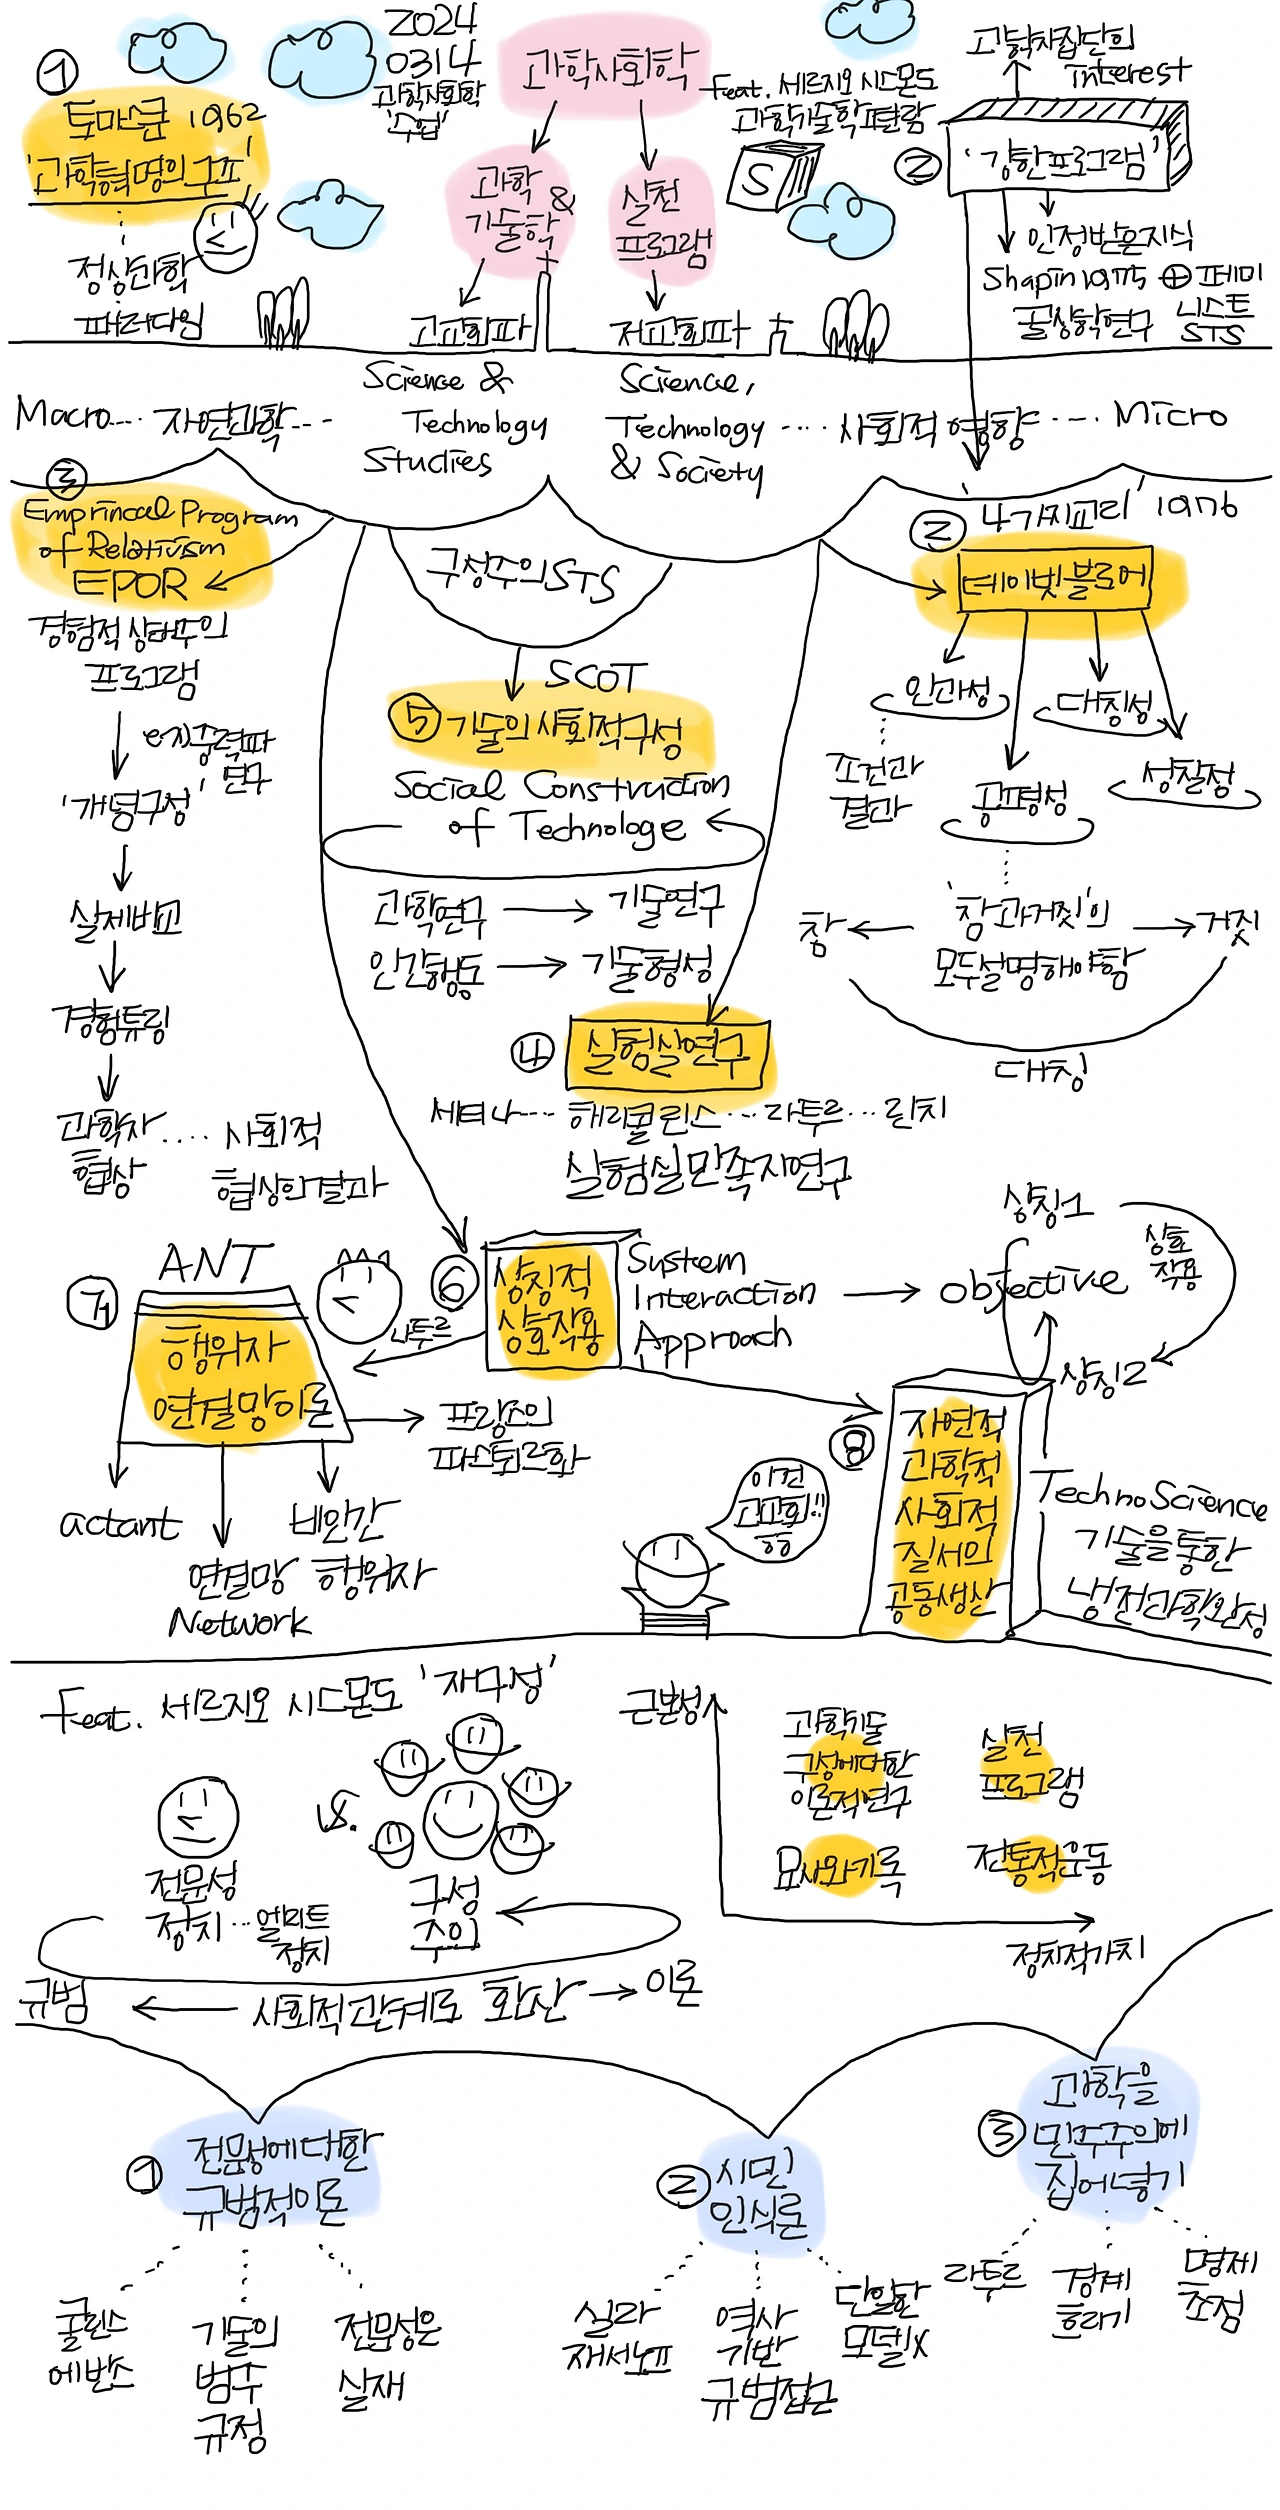 ①
토마스쿤 1962
'과학혁명의 구조'
정상과학
패러다임
2024
0314
과학사회학
'수업'
과학사회학
과학 &
기술학
실천
프로그램
고교회파
저교회파
Feat. 세르지오 시스몬도
과학기술학편람
S
과학자집단의
interest
②
'강한프로그램'
인정받은지식
Shapin 1975 ⊕ 페미
니스트
STS
골상학연구
Macro.... 자연과학---
Science &
Technology
Studies
Science,
Technology
& Society
.... 사회적 영향 .... Micro
③
Emprincal Program
of Relativism
EPOR
경험적 상대주의
프로그램
중력파
연구
'개념구성'
실제비교
경험튜링
과학자 .... 사회적
협상
협상의결과
구성주의STS
SCOT
⑤ 기술의 사회적구성
Social Construction
of Technologe
과학연구 → 기술연구
인간행동 → 기술형성
'4가지교리' 1976
②
데이빗블로어
인과성
대칭성
조건과
결과
공평성
성찰성
'참과거짓'의
모두설명해야함
참
거짓
대칭
④ 실험실연구
세티나.... 해리콜린스 ... 라투르 ... 린치
실험실민족지연구
ANT
⑦
행위자
연결망이론
라투르
프랑스의
파스퇴르화
actant
연결망
Network
비인간
행위자
⑥
상징적
상호작용
System
Interaction
Approach
→ objective
상징1
상호
작용
상징2
⑧
자연적
과학적
사회적
질서의
공동생산
TechnoScience
기술을통한
냉전과학완성
이건
고교회!!
Feat. 세르지오 시스몬도 '재구성'
전문성
정치 ... 엘리트
정치
VS.
구성
주의
규범 ← 사회적관계로 확산 → 이론
근본성
과학기술
구성에대한
이론적연구
실천
프로그램
묘사와기록
전통적운동
정치적가치
① 전문성에대한
규범적이론
콜린스
에반스
기술의
범주
규정
전문성은
실재
② 시민
인식론
실라
재서노프
역사
기반
규범접근
단일한
모델X
③ 과학을
민주주의에
집어넣기
라투르
경계
흐리기
명제
초점